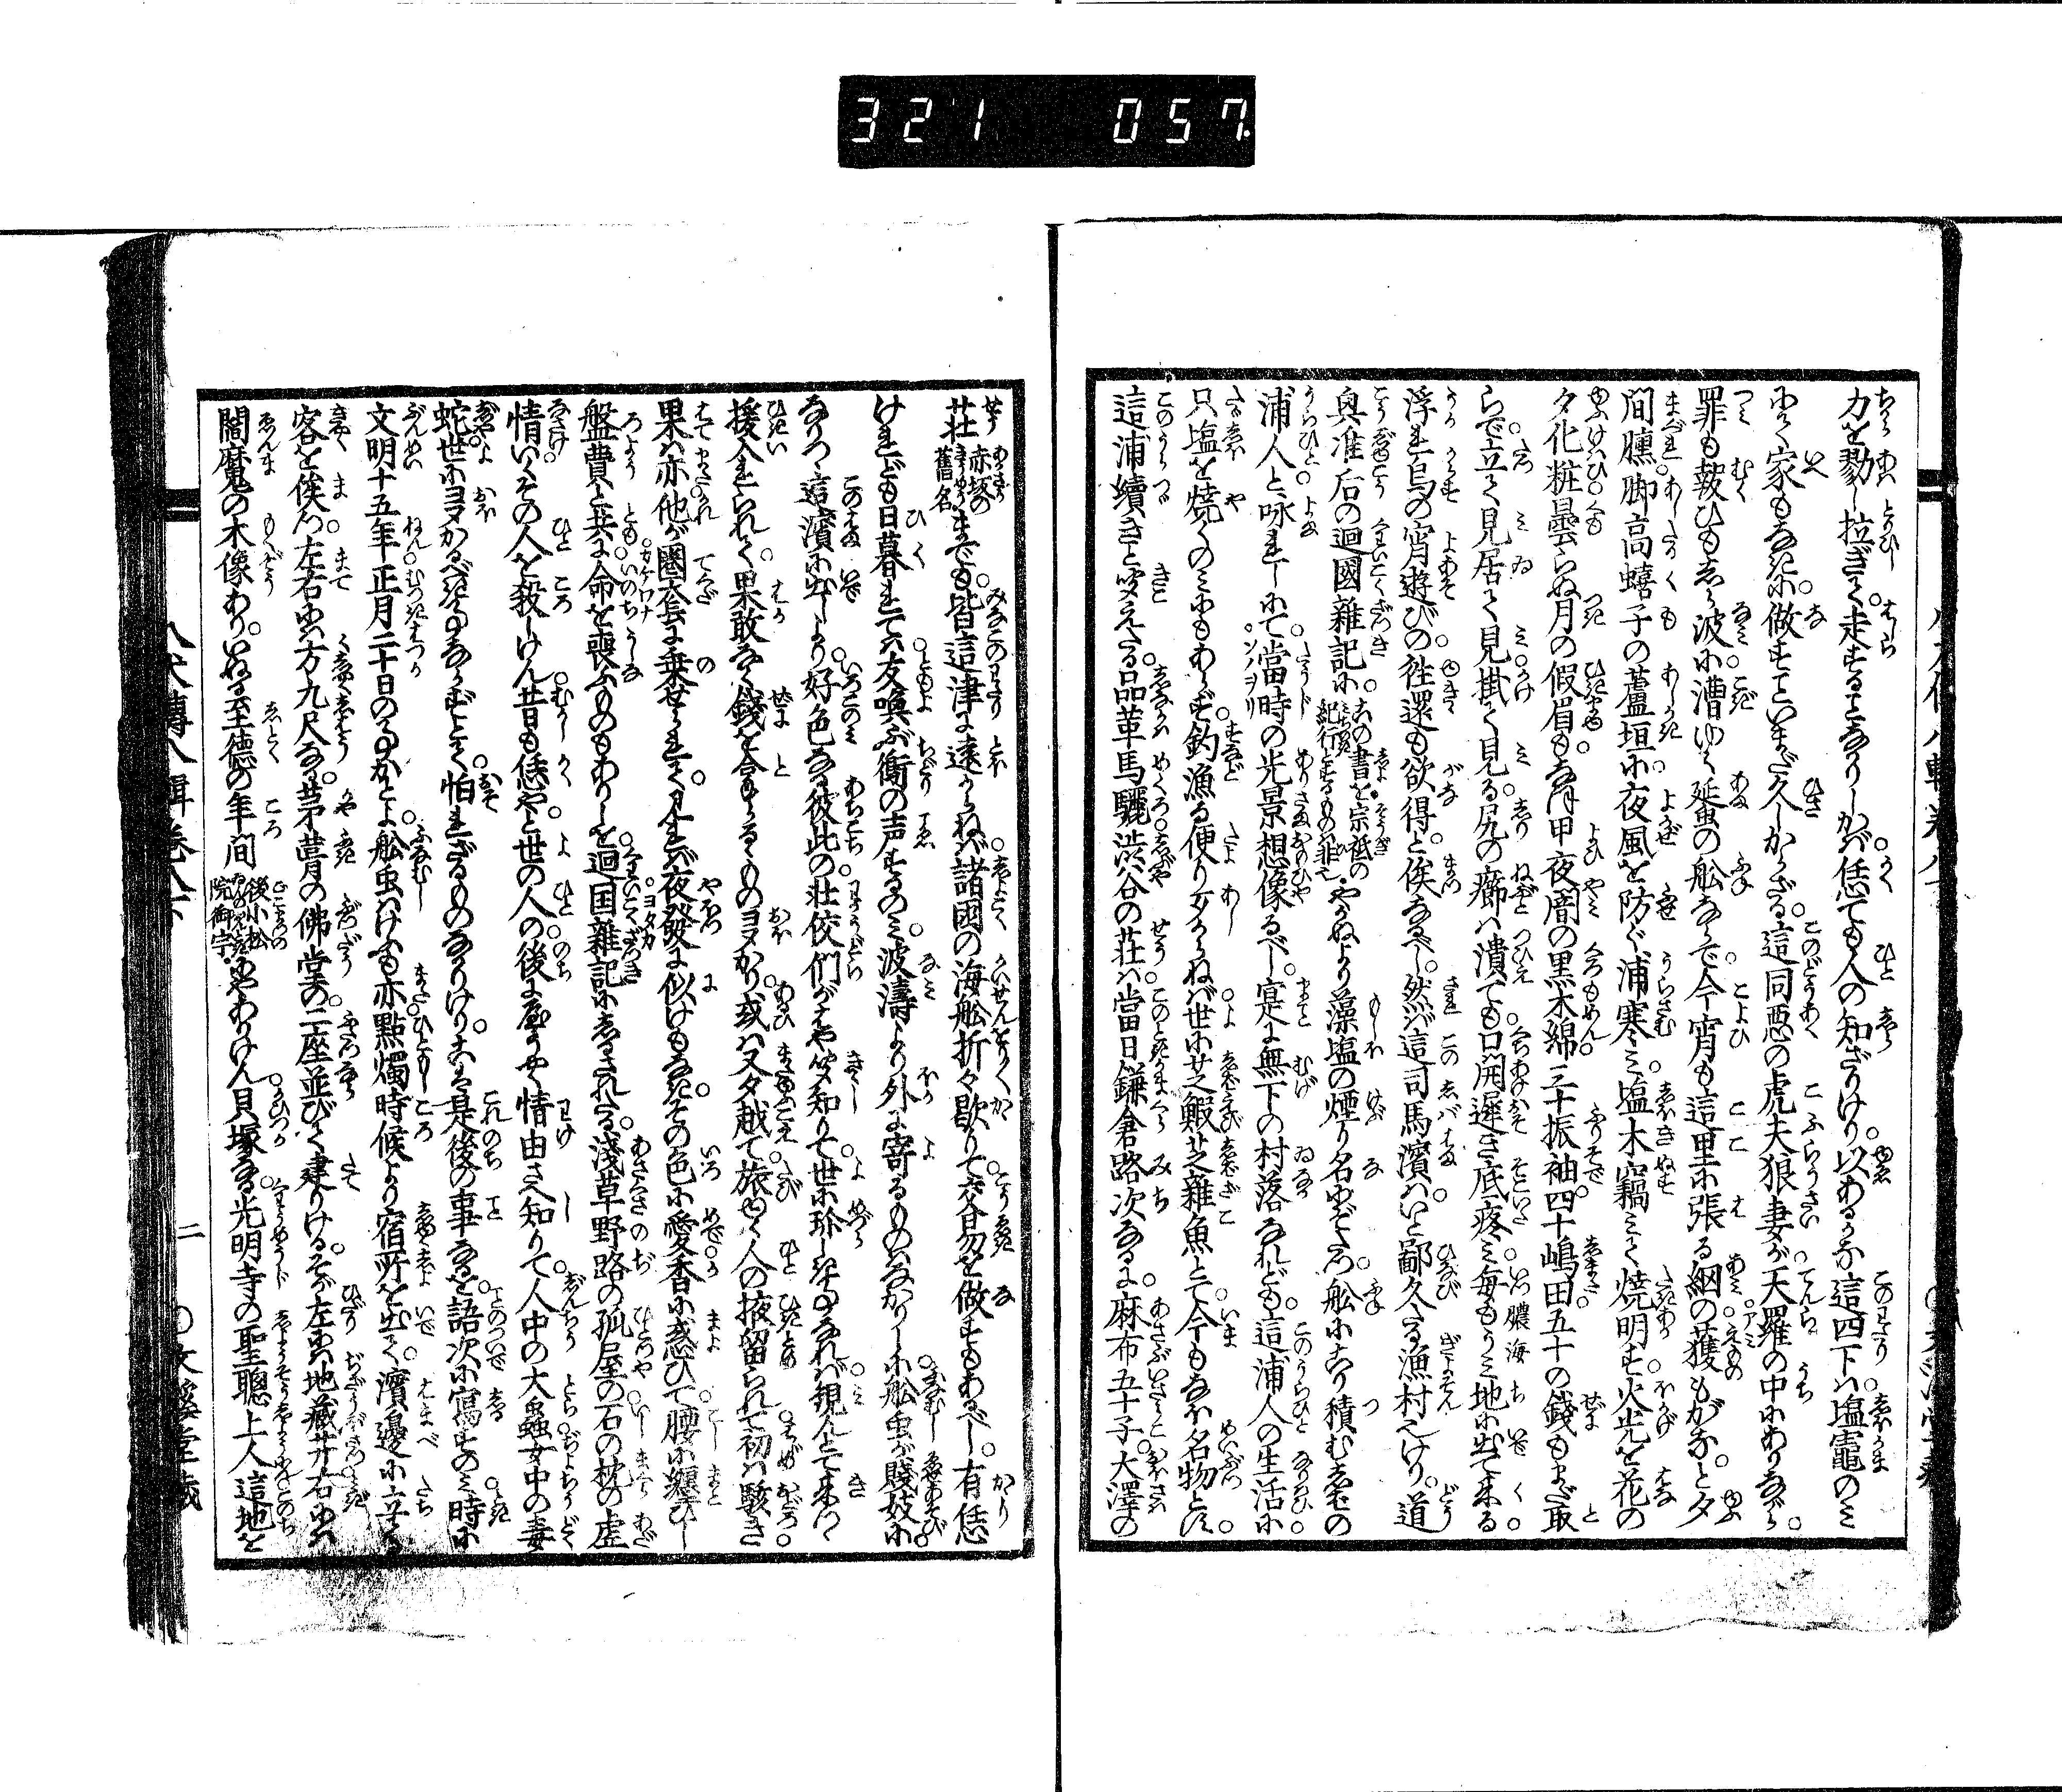 321 057
力を勠し拉ぎて。走するとなりしかバ。恁ても人の知ざりけり。以あるかな這四下ハ。塩竈のミ
にて家もなきに。做すこといまだ久しからざる。這同悪の虎夫狼妻が。天羅の中にありながら。
罪も報ひもしら波に。漕ゆく蜑の舩ならで。今宵も這里に張る網の。獲もがな。と夕
間膁。脚高蟢子の蘆垣に。夜風を防ぐ浦寒ミ。塩木竊ミて焼明す。火光を花の
夕化粧。曇らぬ月の假眉も。なほ甲夜闇の黒木綿。三十振袖四十嶋田。五十の錢もまだ取
らで。立て見居て見掛て見る。尻の癤ハ潰ても。口開遅き底疼ミ。毎もうミ地に出て来る。
浮れ烏の宵遊びの。徃還も欲得。と俟なるべし。然バ這司馬濱ハ。いと鄙久たる漁村也けり。道
興准后の迴國雜記に。この書を宗祇の紀行とするもの非也。やかぬより藻塩の煙り名にぞたつ。舩にこり積むしばの
浦人。と咏れしにて。當時の光景想像るべし。寔に無下の村落なれども。這浦人の生活に。
只塩を焼くのミにもあらず。釣漁る便り女からねバ。世に芝鰕芝雜魚とて。今もなほ名物とす。
這浦續きと聞えたる。品革馬驪渋谷の荘ハ。當日鎌倉路次なるに。麻布五十子。大澤の
荘赤坂の舊名までも。皆這津に遠からねバ。諸國の海舩折々歇りて。交易を做すもあるべし。有恁
けれども日暮れてハ。友喚ぶ衛の声するのミ。波濤より外に寄るものハなかりしに。舩虫が賤妓に
なりつゝ這濱に出しより。好色なる彼此の。壮佼們がはや聞知りて。世に珍しき事なれバ。親んとて来つゝ
援余せられて。果敢なく錢を合するものヨヌかり。或ハ又夕越て。旅ゆく人の掖留られて。初ハ駭き。
果ハ亦他が圏套に乗せられて。今れバ夜發に似けもなき。その色に愛香に惑ひて。腰に纏ひし
盤費と共に。命を喪ふものもありしを。迴国雜記にしるされたる。淺草野路の孤屋の石の枕の虚
情。いくその人を殺しけん。昔も恁やと世の人の。後に屢々情由さへ知りて。人中の大蟲女中の毒
蛇。世にヨヌかるべき事ならずとて。怕れざるものなりけり。こは是後の事なるを。語次に寫すのミ。時に
文明十五年。正月二十日の事かとよ。舩虫ハけふも亦。點燭時候より宿所を出て。濱邊に立て
客を俟つ。左右四方九尺なる。茅葺の佛堂の。二座並びて建りける。そが左ハ地藏井右にハ
閻魔の木像あり。いぬる至德の年間後小松院御宇。にやありけん。貝塚なる。光明寺の聖聰上人這地を
八犬傳八輯卷八下
二
○文溪堂藏